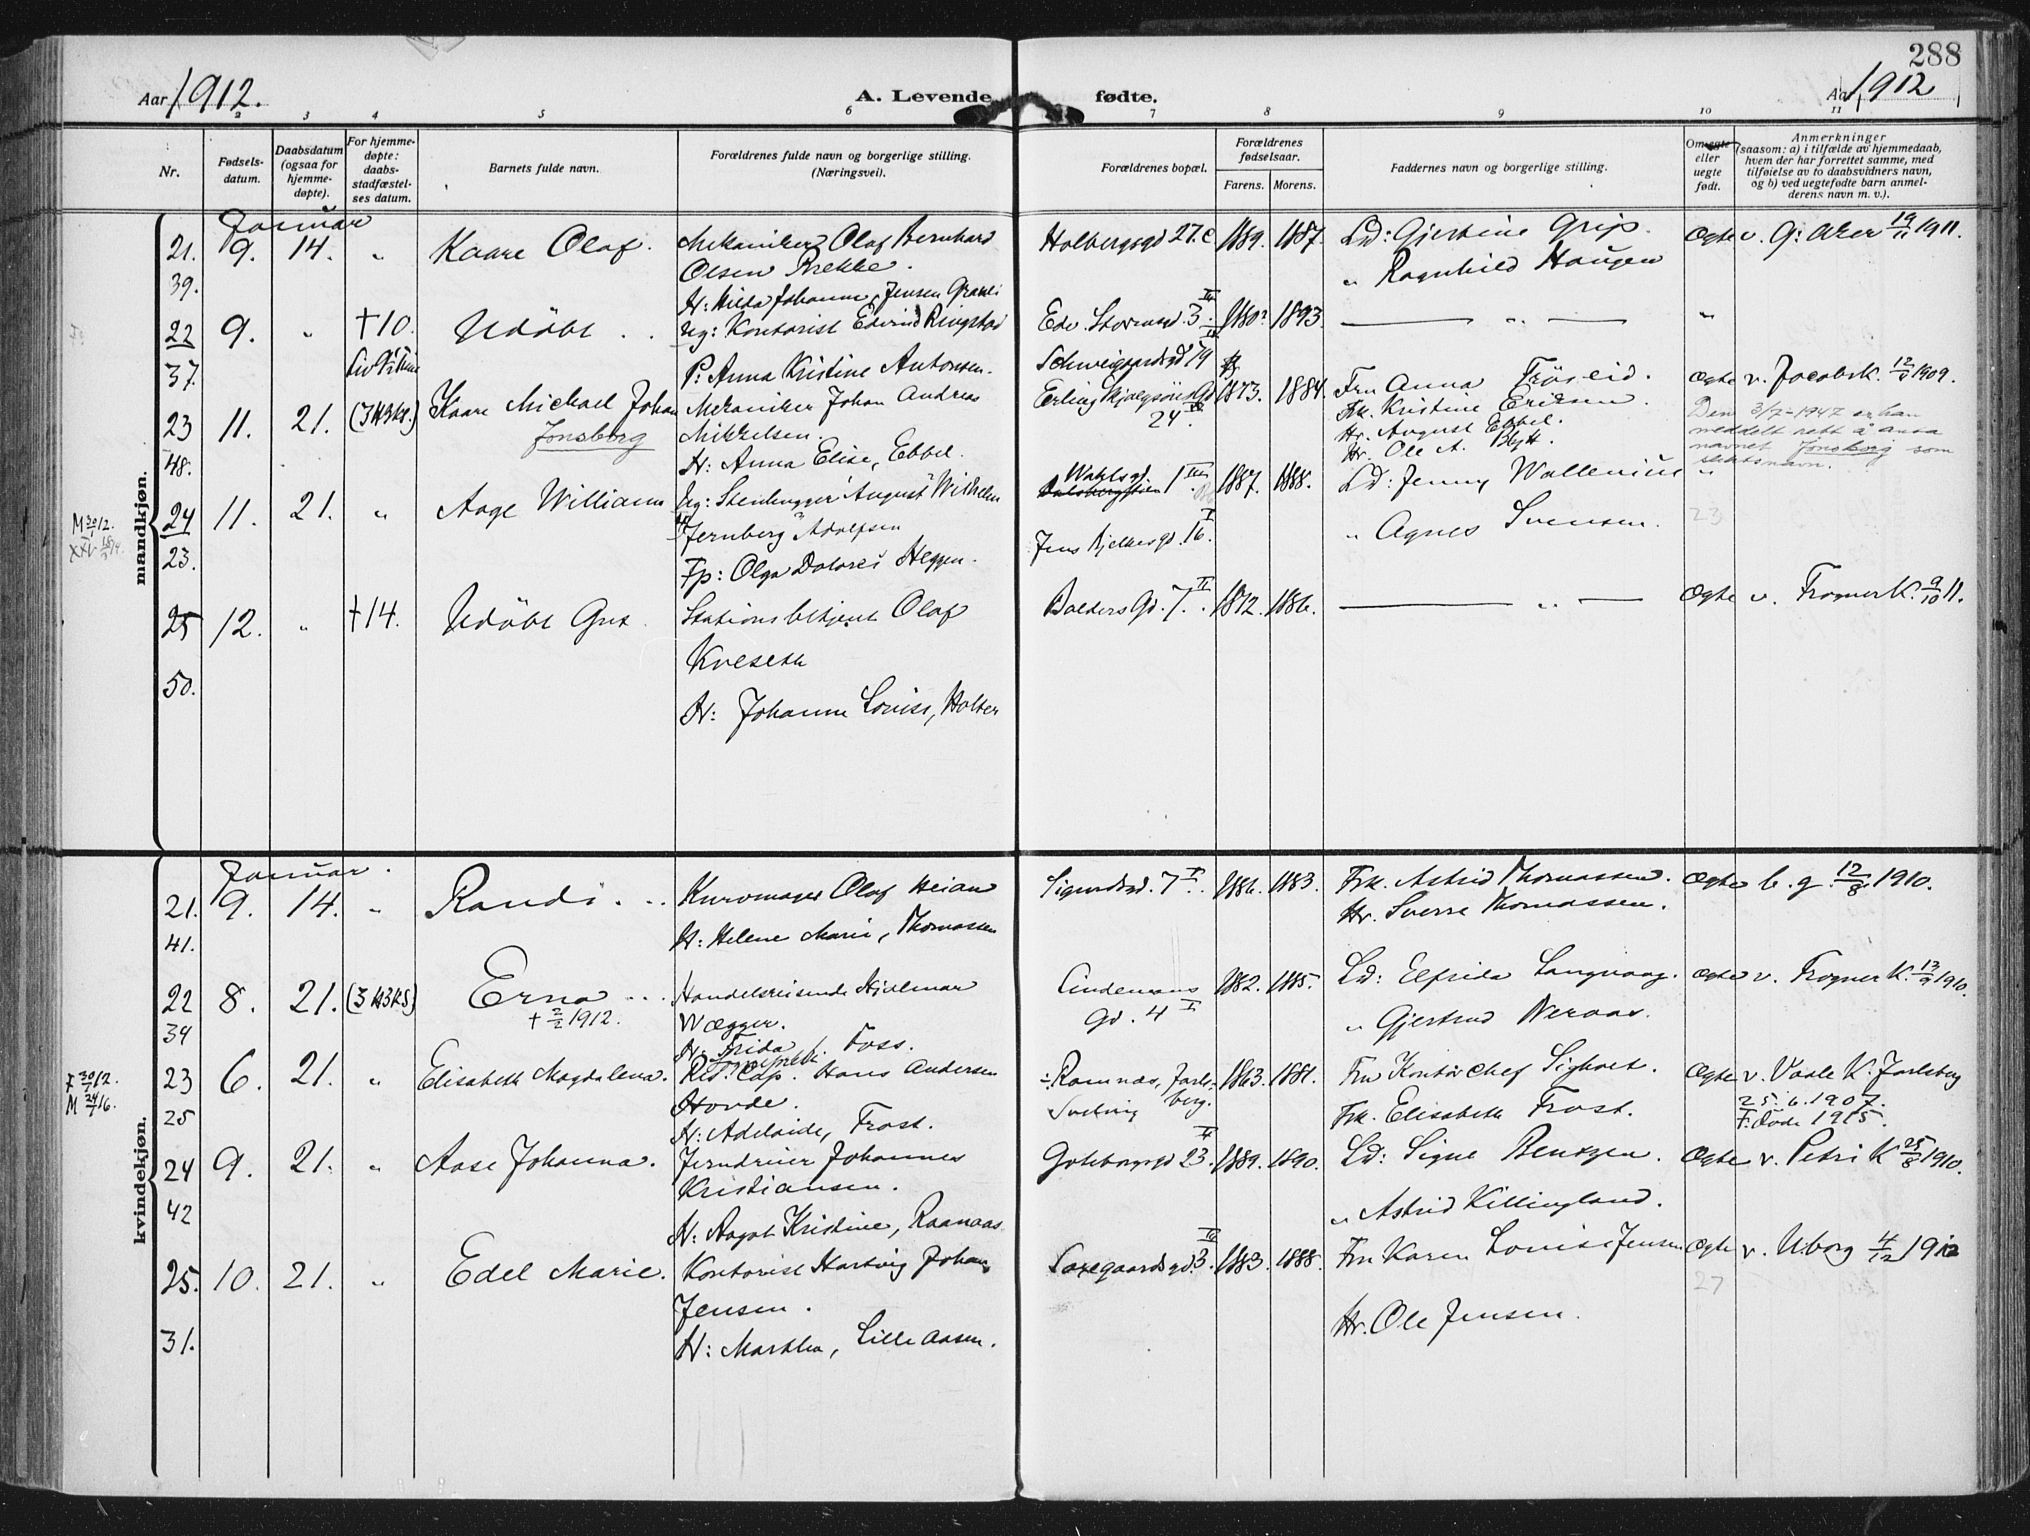 288
Aar 1912.
A. Levende fødte.
Aar 1912
2 3 4 5 6 7 8 9 10 11
Nr.
Fødsels-
datum.
Daabsdatum
(ogsaa for
hjemme-
døpte).
For hjemme-
døpte:
daabs-
stadfæstel-
ses datum.
Barnets fulde navn.
Forældrenes fulde navn og borgerlige stilling.
(Næringsvei).
Forældrenes bopæl.
Forældrenes
fødselsaar.
Farens. Morens.
Faddernes navn og borgerlige stilling.
Om egte
eller
uegte
født.
Anmerkninger
(saasom: a) i tilfælde av hjemmedaab,
hvem der har forrettet samme, med
tilføielse av to daabsvidners navn,
og b) ved uegtefødte barn anmel-
derens navn m. v.).
mandkjøn.
Januar
21. 9. 14. " Kaare Olaf. Mekaniker Olaf Bernhard Holbergsgd 27.c 1889. 1887. Ld: Gjertine Grip. Ogte v. G: Aker 19/11 1911.
39. Olsen Brekke. " Ragnhild Haugen
H: Hilda Johanne, Jensen Gravli
22 9. " †10. Udöbt .. Ug: Kontorist Edvind Ringstad Edv. Stormsgd. 3. IV 1880? 1893. — " — "
37. P: Anna Kristine Antonsen. Schweigaardsgd 79
23 11. 21. (3 H3KS.) Kaare Michael Johan Mekaniker Johan Andreas Erling Skjalgsöns Gd 1873. 1884. Fru Anna Fröslid. Ogte v. Jacobsk. 1909.
48. Jonsborg Mikkelsen. 24 Frk. Kristine Eriksen. Den 3/7-1947 er han
H: Anna Elise, Ebbel. Hr. August Ebbel. meddelt rett å anta
Hr. Ole A. navnet Jonsborg som
slektsnavn.
24 11. 21. " Aage William Ug: Stenhugger August Wilhelm Wahlsgd. 1 III 1887. 1888. Ld: Jenny Wallenius "
23. Jernberg Adolfsen " Agnes Svensen. 23
Fp: Olga Dolores Heggen. Jens Bjelkesgd. 16. I
M 30/1 12.
25 12. " †14. Udöbt Gut. Stationsbetjent Olaf Balders Gd. 7. II 1872. 1886. — " — Ogte v. FrognerK. 9/10 11.
50. Kveseth
H: Johanne Louise, Holter
kvindekjøn.
Januar.
21. 9. 14. " Randi. .. Kurvmager Olaf Heian Sigurdsgd. 7 I. 1886. 1883. Frk. Astrid Thomassen. Ogte b. g. 12/8. 1910.
41. H: Helene Marie, Thomassen Hr. Sverre Thomassen.
22 8. 21. (3 H3KS) Erna ... Handelsreisende Hjalmar Lindemans 1882. 1885. Ld: Elfrida Langvaag. Ogte v. Frogner K. 1910.
34 † 2/2 1912. Wægger. Gd. 4 I " Gjertrud Neraas.
H: Frida, Foss.
23 6. 21. " Elisabeth Magdalena. Res. Cap. Hans Andersen ÷Ramnæs, Jarls- 1863. 1881. Fru Kontorchef Sigholt. Ogte v. Vaale K. Jarlsberg
25 Hovde. Svelvig berg. Frk. Elisabeth Frost. 25.6.1907.
H: Adelaide, Frost. F: Döde 1915.
F 30/1 12.
M 24/1 16.
24 9. 21. " Aase Johanna. Jerndreier Johannes Goteborgsgd 23. II 1889. 1890. Ld: Signe Bentzen. Ogte v. Petri K 25/8 1910.
42 Kristiansen. " Astrid Killingland.
H: Aagot Kristine, Raanaas
25. 10. 21. " Edel Marie. Kontorist Hartvig Johan Saxegaardsgd. 3. IV 1883. 1888. Fru Karen Louise Jensen Ogte v. Uborg 4/12 1912
31. Jensen. Hr. Ole Jensen. 27
H: Martha, Lilleaasen.